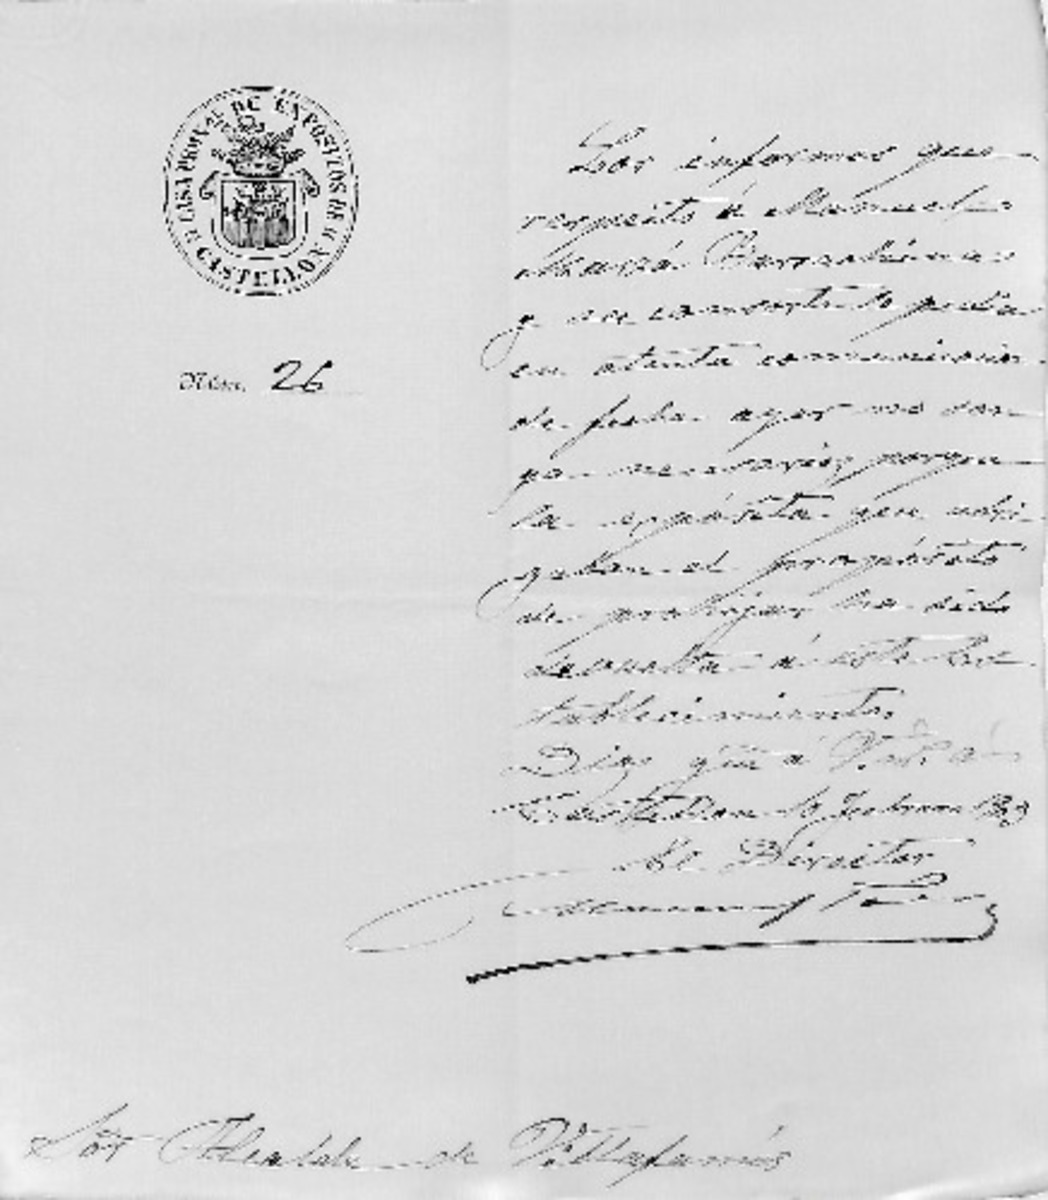 CASA PROVAL DE EXPÓSITOS DE
CASTELLON
Núm. 26
Los informes que
respecto á Manuel
María Barrachina
y su consorte le pedia
en atenta comunicacion
de fecha ayer no son
ya necesarios, porque
la expósita que
el propósito
de prohijar ha sido
devuelta á este Es-
tablecimiento.
Dios gue á V.
Castellon 10 Febrero
El Director
Sor Alcalde de Villafamés